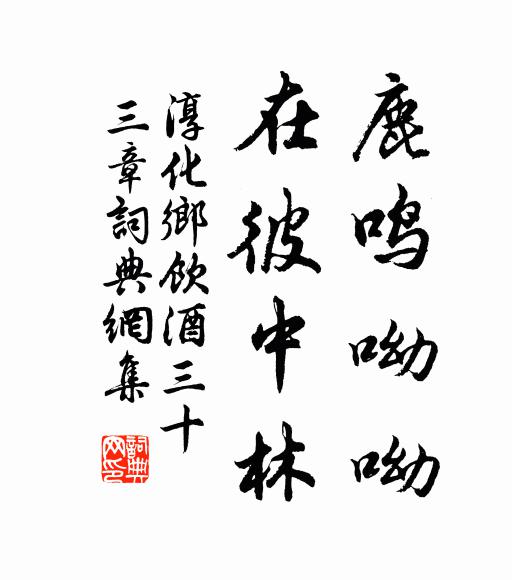 鹿鸣呦呦
在彼中林
淳化鄉飲酒三十
三章詞典網集
詞典网印